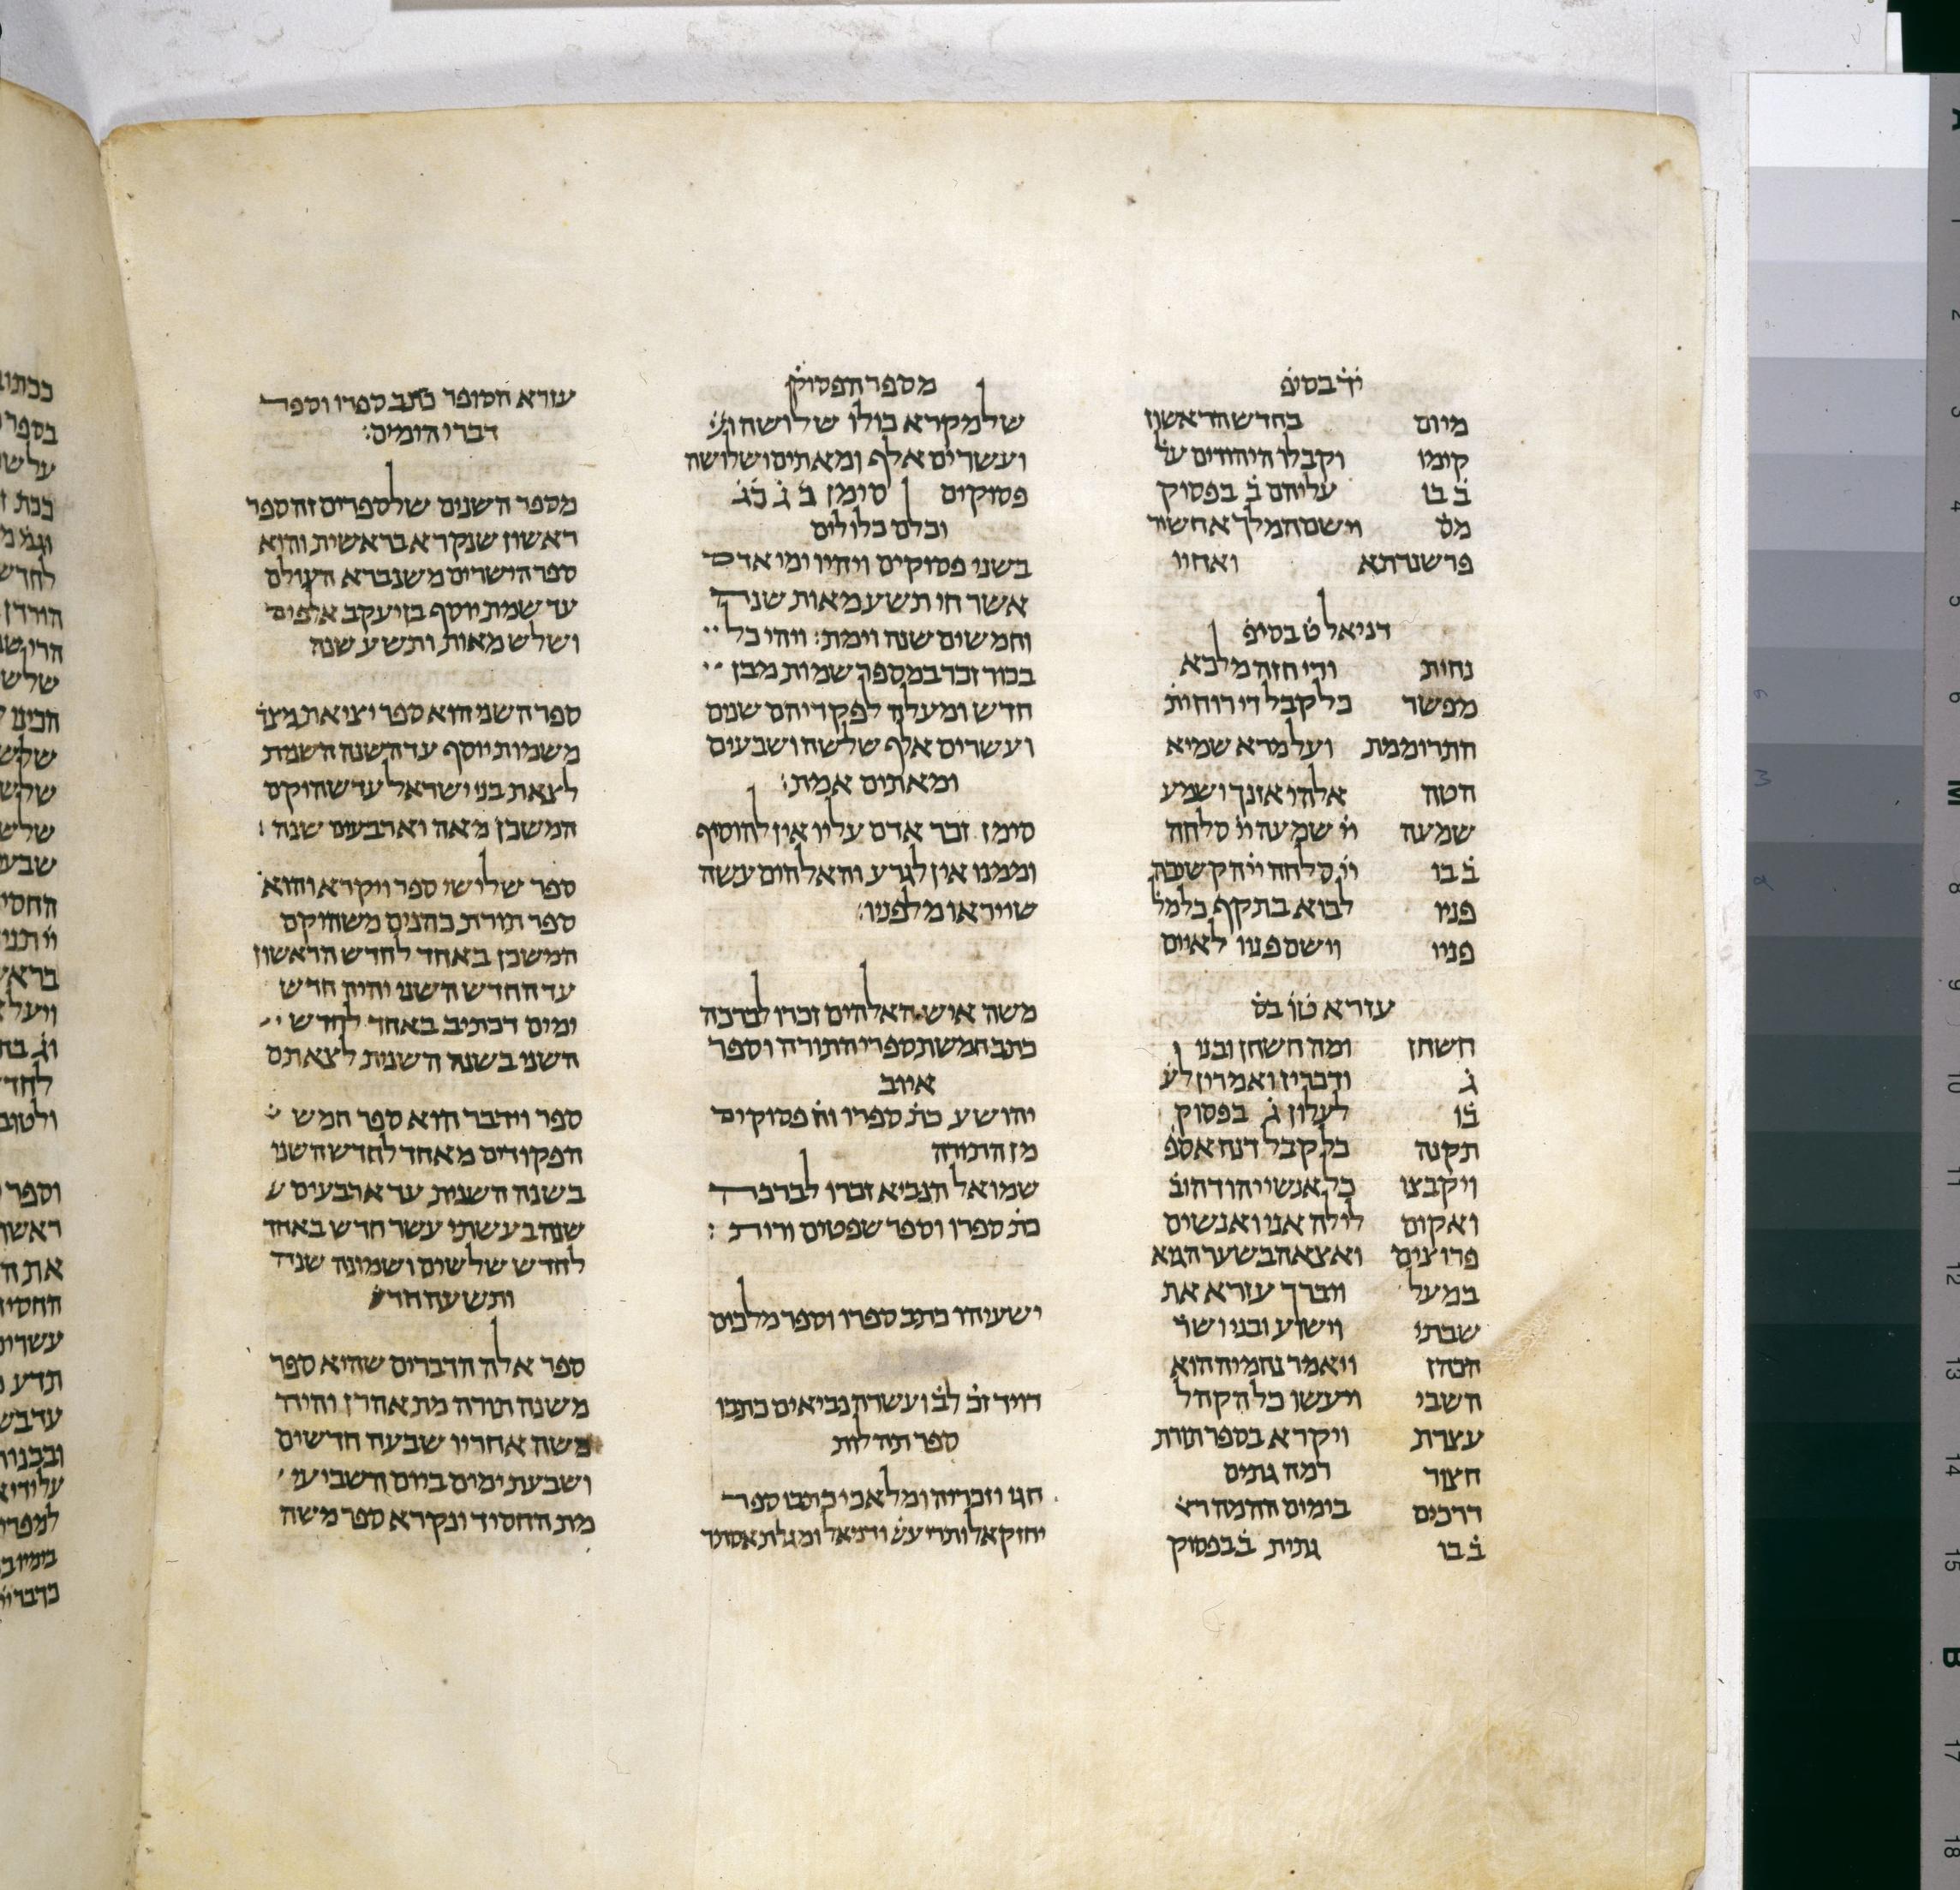 יד בסיפ
מיום בחדש הראשון
קימו וקבלו היהודים על
ב בו עליהם ב בפסוק
מס וישם המלך אחשיר
פרשנדתא ואחיו
דניאל ט בסיפ
נחית ודי חזה מלכא
מפשר כל קבל די רוחית
התרוממת ועל מרא שמיא
הטה אלהי אזנך ושמע
שמעה יי שמעה יי סלחה
ב בו יי סלחה יי הקשיבה
פניו לבוא בתקף כל מל
פניו וישם פניו לאיים
עזרא טו בס
חשחן ומה חשחן ובני
ג ודבריז ואמרין לע
בו לעלון ג בפסוק
תקנה כל קבל דנה אספ
ויקבצו כל אנשי יהודה וב
ואקום לילה אני ואנשים
פרוצים ואצאה בשער הגיא
במעל ויברך עזרא את
שבתי וישוע ובני ושר
הכהן ויאמר נחמיה הוא
השבי ויעשו כל הקהל
עצרת ויקרא בספר תורת
חצור רמה גתים
דרכים בימים ההמה רא
ב בו גתית ב בפסוק
מספר הפסוק
שלמקרא כולו שלושה וע
ועשרים אלף ומאתים ושלושה
פסוקים סימן ב ג כג
וכלם כלולים
בשני פסוקים ויהיו ימי אדם
אשר חי תשע מאות שנה
וחמשים שנה וימת: ויהי כל
בכור זכר במספר שמות מבן
חדש ומעלה לפקדיהם שנים
ועשרים אלף שלשה ושבעים
ומאתים אמת:
סימן זכר אדם עליו אין להוסיף
וממנו אין לגרע והאלהים עשה
שייראו מלפניו:
משה איש האלהים זכרו לברכה
כתב חמשת ספרי התורה וספר
איוב
יהושע כת ספרו וח פסוקים
מן התורה
שמואל הנביא זכרו לברכה
כת ספרו וספר שפטים ורות:
ישעיהו כתב ספרו וספר מלכים
דויד זכ לב ועשרה נביאים כתבו
ספר תהלות
חגי וזכריה ומלאכי כתבו ספר
יחזקאל ותרי עש ודניאל ומגלת אסתר
עזרא הסופר כתב ספרו וספר
דברי הימים:
מספר השנים שלספרים זה ספר
ראשון שנקרא בראשית והוא
ספר הישרים משנברא העולם
עד שמת יוסף בן יעקב אלפים
ושלש מאות ותשע שנה
ספר השני הוא ספר יציאת מצר
משמות יוסף עד השנה השנית
לצאת בני ישראל עד שהוקם
המשכן מאה וארבעים שנה:
ספר שלישי ספר ויקרא והוא
ספר תורת כהנים משהוקם
המשכן באחד לחדש הראשון
עד החדש השני והיה חדש
ימים דכתיב באחד לחדש
השני בשנה השנית לצאתם
ספר וידבר הוא ספר חמש
הפקודים מאחד לחדש השני
בשנה השנית עד ארבעים ש
שנה בעשתי עשר חדש באחד
לחדש שלשים ושמונה שנה
ותשעה חדש
ספר אלה הדברים שהיא ספר
משנה תורה מת אהרן והיה
משה אחריו שבעה חדשים
ושבעת ימים ביום השביעי
מת החסיד ונקרא ספר משה